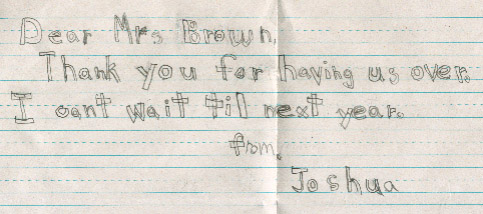 Dear Mrs Brown,
Thank you for having us over.
I cant wait til next year.
from,
Joshua